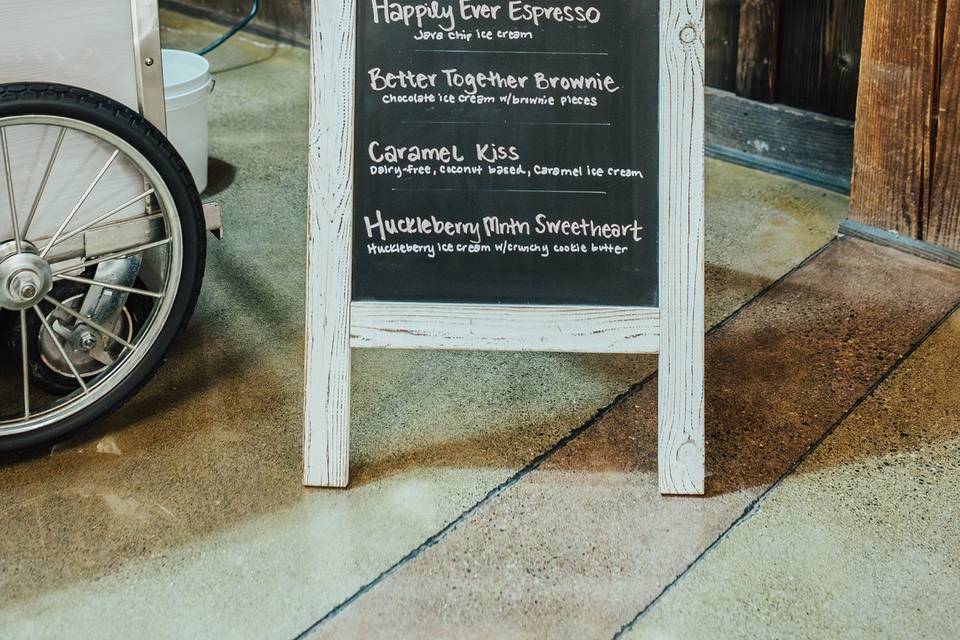 Happily Ever Espresso
Java chip ice cream
Better Together Brownie
chocolate ice cream w/brownie pieces
Caramel Kiss
Dairy-free, coconut based, Caramel ice cream
Huckleberry Mntn Sweetheart
Huckleberry ice cream w/crunchy cookie butter